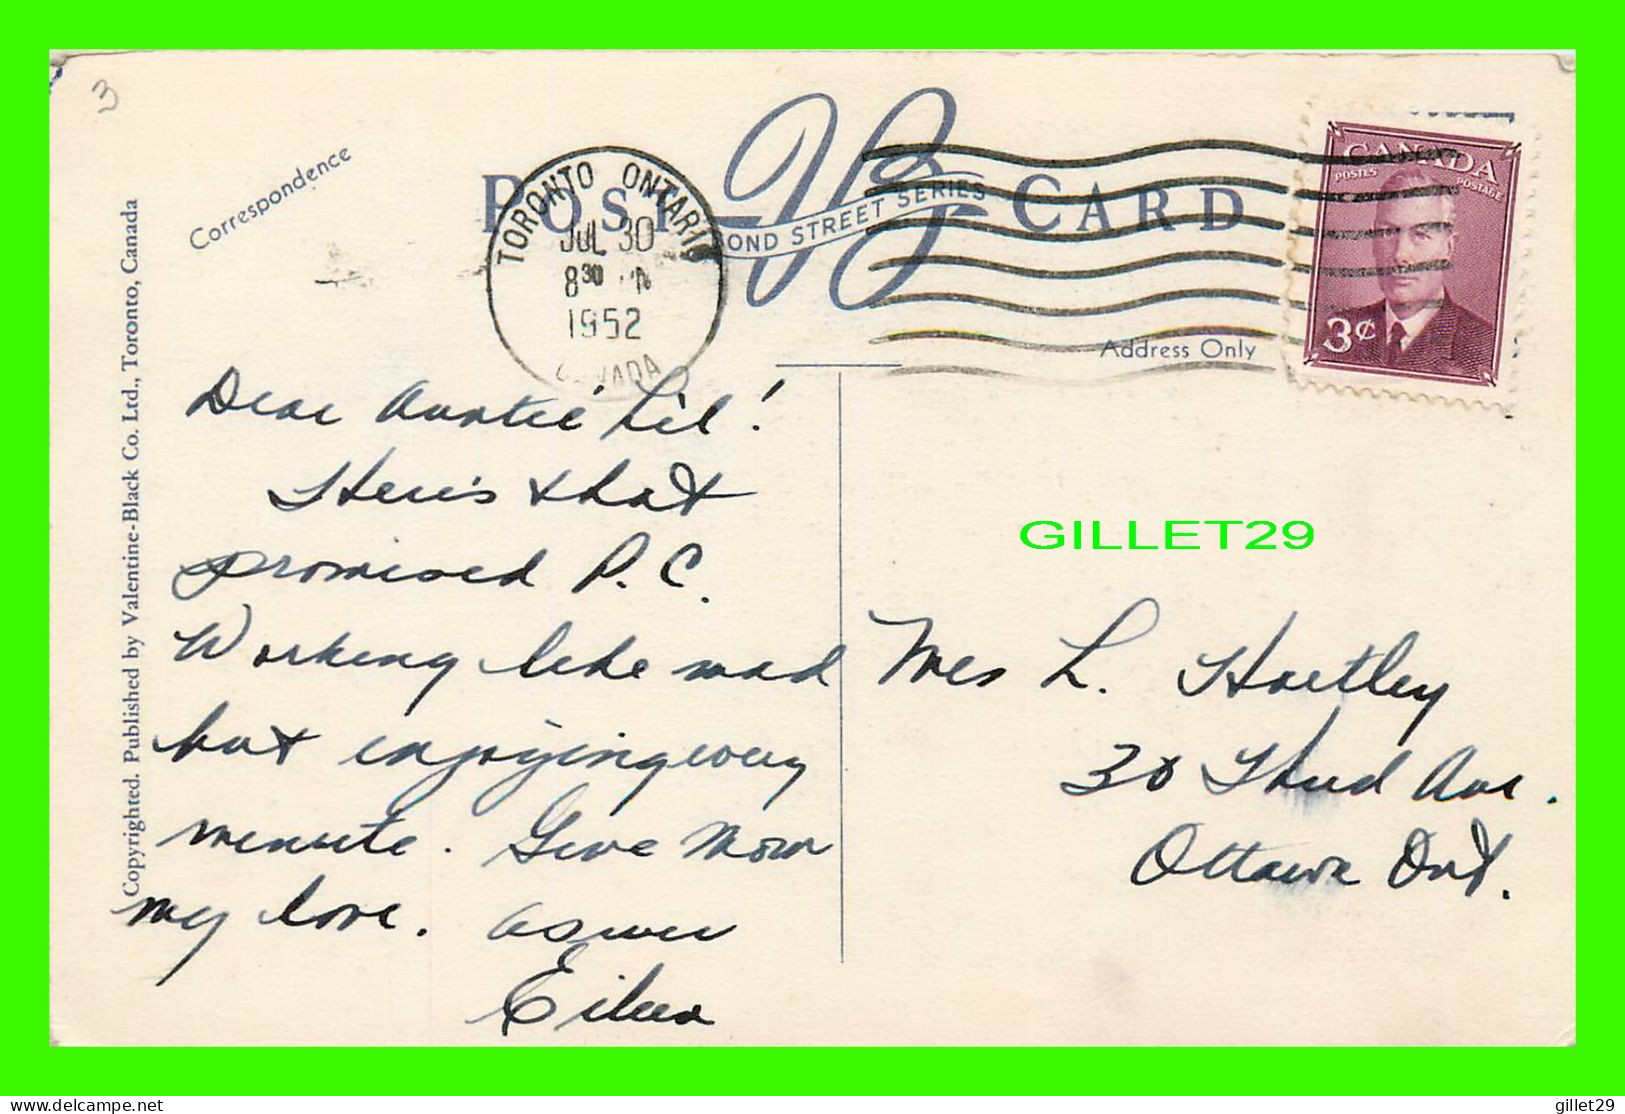 3
Correspondence
POST CARD
VB
OND STREET SERIES
TORONTO ONTARIO
JUL 30
8 30
1952
CANADA
CANADA
POSTES POSTAGE
3¢
Address Only
Copyrighted. Published by Valentine-Black Co. Ltd., Toronto, Canada
Dear Auntie Lil!
Here's that
promised P.C.
Working like mad
but enjoying every
minute. Give Mom
my love. as ever
Eileen
GILLET29
Mrs L. Hartley
30 Third Ave.
Ottawa Ont.
delcampe.net
gillet29